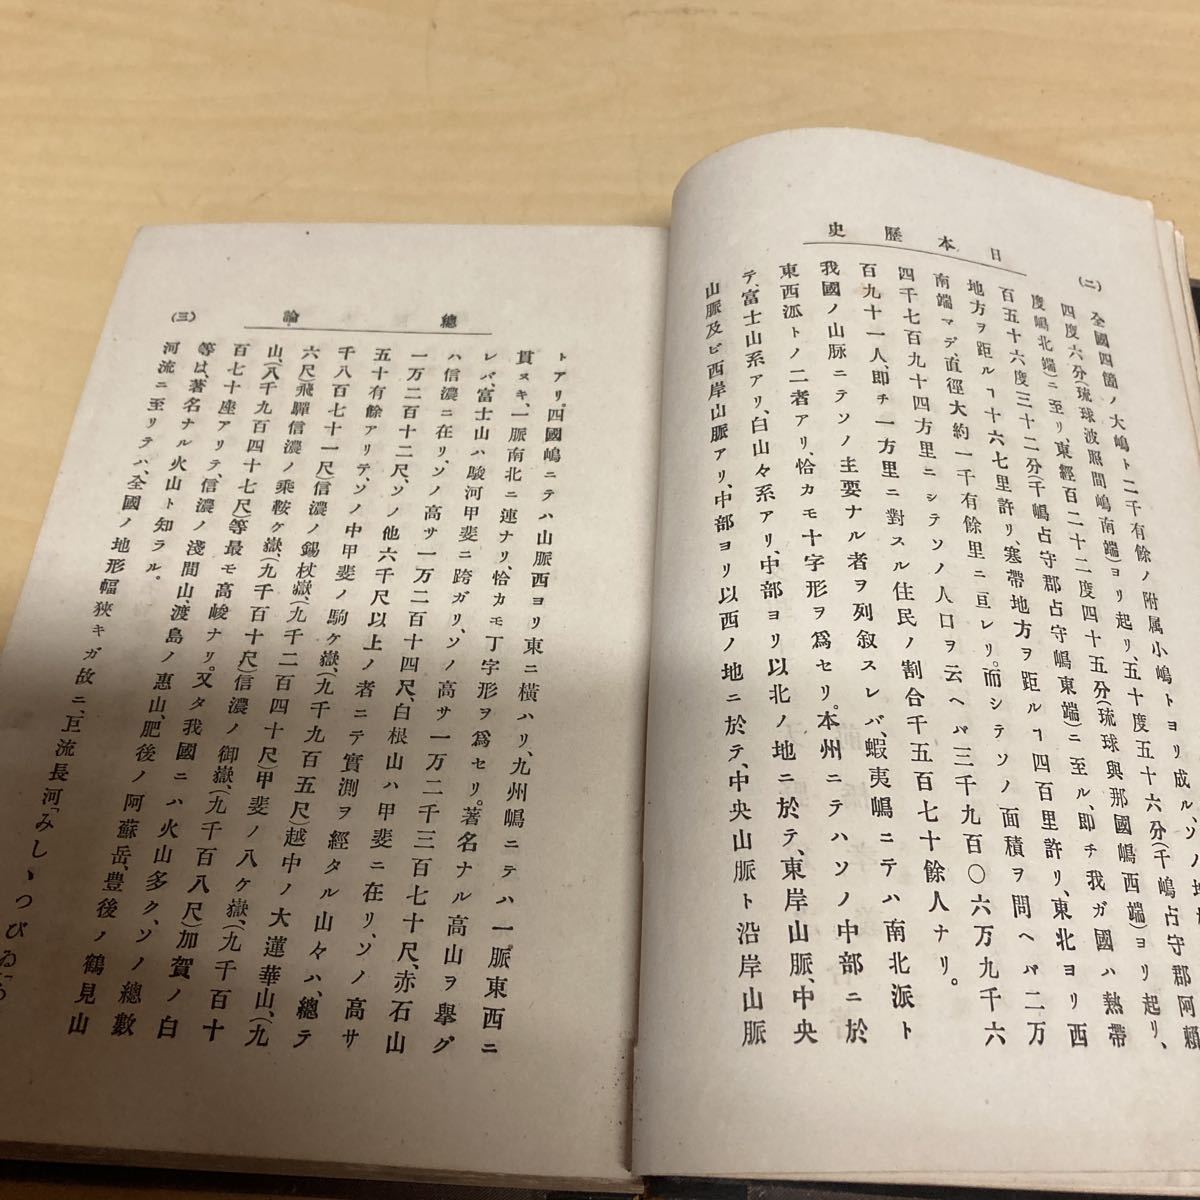 日本歷史
(二)
全國四箇ノ大嶋ト二千有餘ノ附属小嶋トヨリ成ル、ソノ地
四度六分(琉球波照間嶋南端)ヨリ起リ、五十度五十六分(千嶋占守郡阿賴
度嶋北端)ニ至リ、東經百二十二度四十五分(琉球與那國嶋西端)ヨリ起リ、
百五十六度三十二分(千嶋占守郡占守嶋東端)ニ至ル、即チ我ガ國ハ熱帶
地方ヲ距ルヿ十六七里許リ、寒帶地方ヲ距ルヿ四百里許リ、東北ヨリ西
南端マデ直徑大約一千有餘里ニ亘レリ。而シテソノ面積ヲ問ヘバ二万
四千七百九十四方里ニシテソノ人口ヲ云ヘバ三千九百〇六万九千六
百九十一人、即チ一方里ニ對スル住民ノ割合千五百七十餘人ナリ。
我國ノ山脉ニテソノ主要ナル者ヲ列叙スレバ、蝦夷嶋ニテハ南北派ト
東西派トノ二者アリ、恰カモ十字形ヲ爲セリ。本州ニテハソノ中部ニ於
テ、富士山系アリ、白山々系アリ、中部ヨリ以北ノ地ニ於テ、東岸山脈、中央
山脈及ビ西岸山脈アリ、中部ヨリ以西ノ地ニ於テ、中央山脈ト沿岸山脈
總論
(三)
トアリ。四國嶋ニテハ山脈西ヨリ東ニ横ハリ、九州嶋ニテハ一脈東西ニ
貫ヌキ、一脈南北ニ連ナリ、恰カモ丁字形ヲ爲セリ。著名ナル高山ヲ擧グ
レバ、富士山ハ駿河甲斐ニ跨ガリ、ソノ高サ一万二千三百七十尺、赤石山
ハ信濃ニ在リ、ソノ高サ一万二百十四尺、白根山ハ甲斐ニ在リ、ソノ高サ
一万二百十二尺、ソノ他六千尺以上ノ者ニテ實測ヲ經タル山々ハ、總テ
五十有餘アリテ、ソノ中甲斐ノ駒ケ嶽、(九千九百五尺)越中ノ大蓮華山、(九
千八百七十一尺)信濃ノ錫杖嶽、(九千二百四十尺)甲斐ノ八ケ嶽、(九千百十
六尺)飛驒信濃ノ乘鞍ケ嶽、(九千百十尺)信濃ノ御嶽、(九千百八尺)加賀ノ白
山、(八千九百四十七尺)等最モ高峻ナリ。又タ我國ニハ火山多ク、ソノ總數
百七十座アリテ、信濃ノ淺間山、渡島ノ惠山、肥後ノ阿蘇岳、豊後ノ鶴見山
等は、著名ナル火山ト知ラル。
河流ニ至リテハ、全國ノ地形幅狹キガ故ニ、巨流長河「みしゝつぴゐ」